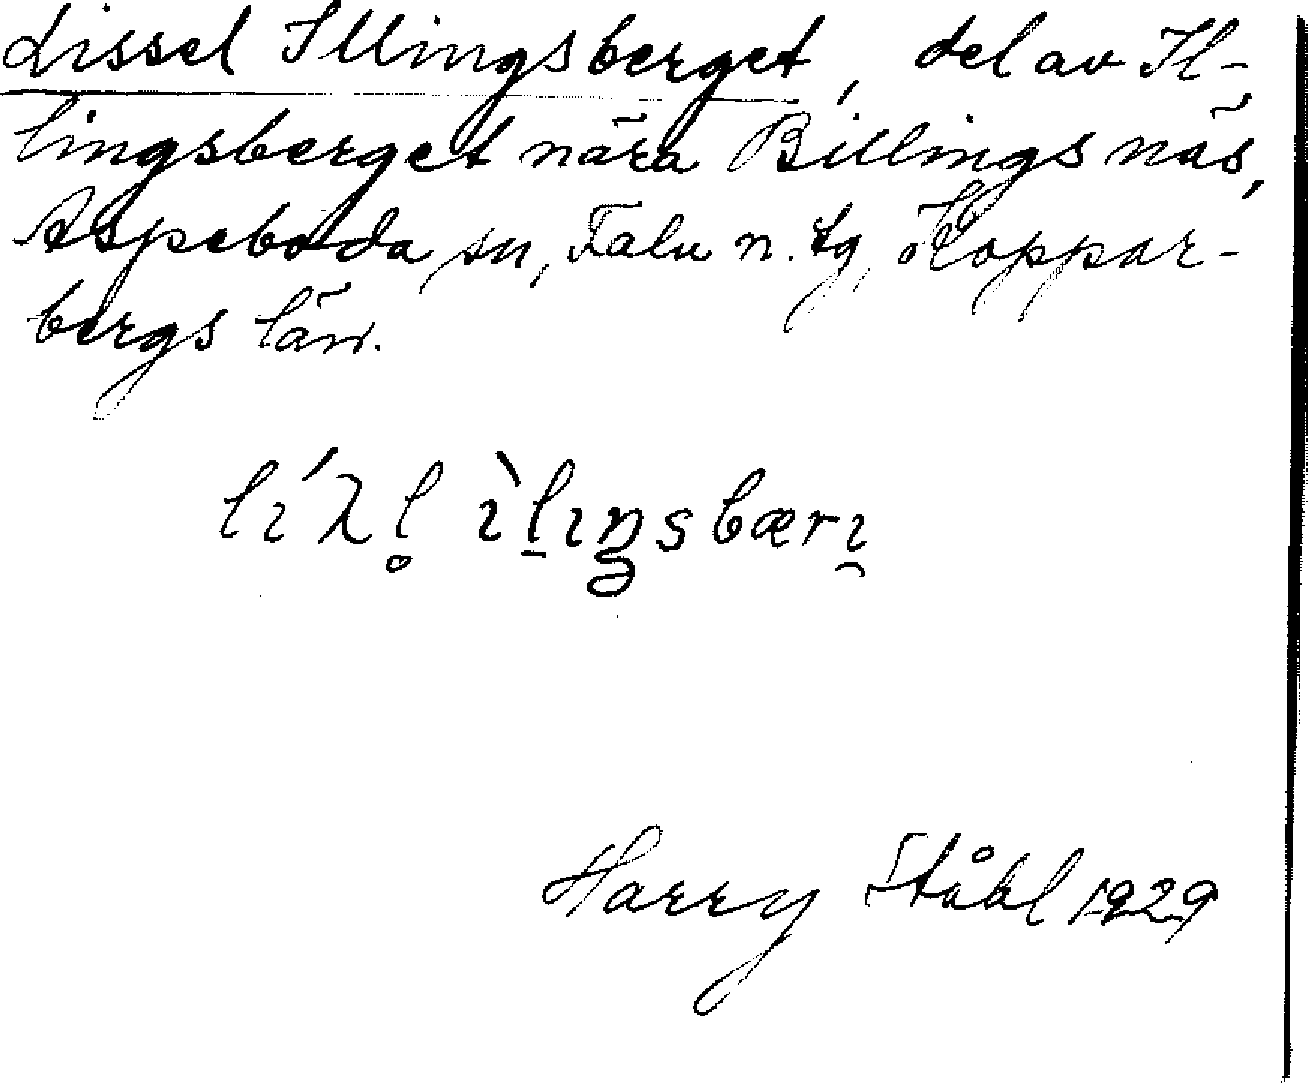 Lissel Illingsberget, del av Il-
lingsberget nära Billingsnäs,
Aspeboda sn, Falu n. tg, Koppar-
bergs län.
lı́λl̥ ı̀l̠ıŋsbærı̯
Harry Ståhl 1929